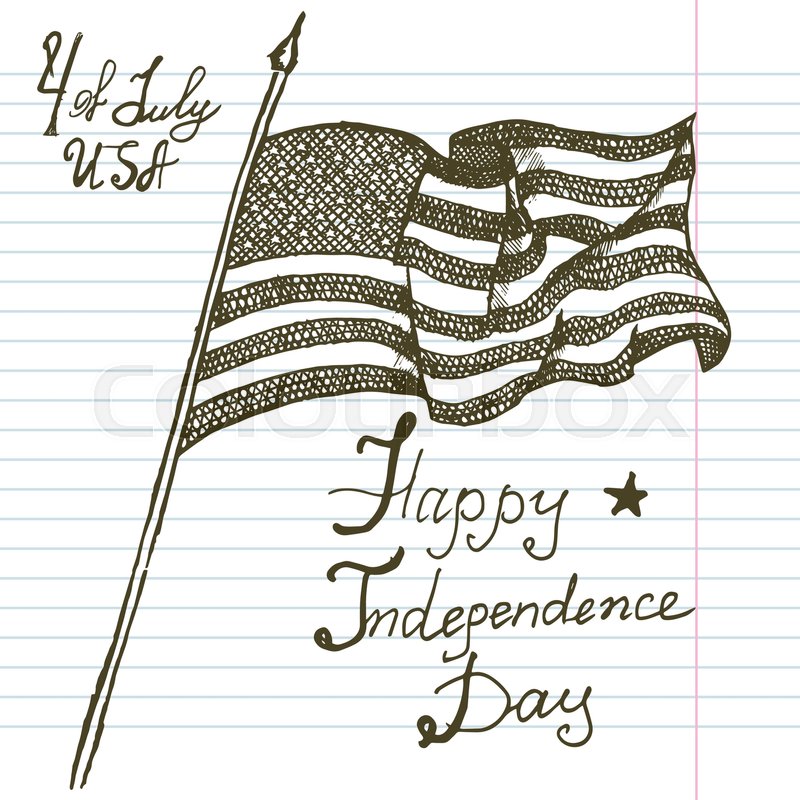 4 of July
USA
colourbox
Happy
Independence
Day